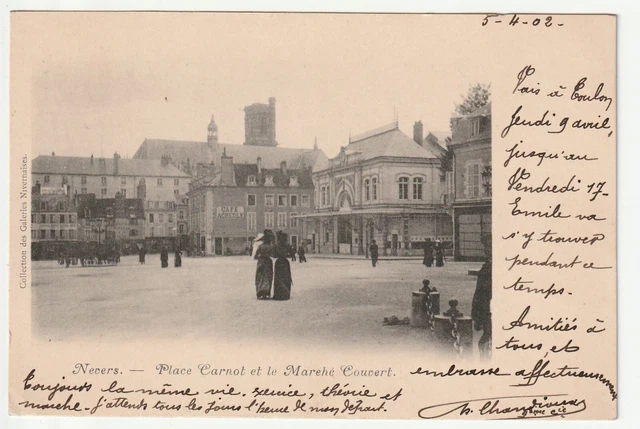 5-4-02-
Vais à Toulon
Jeudi 9 avril,
jusqu'au
Vendredi 17-
Emile va
s'y trouver
pendant ce
temps.
Amitiés à
tous, et
embrasse affectueusement
Collection des Galeries Nivernaises.
Nevers. — Place Carnot et le Marché Couvert.
Toujours la même vie. service, théorie et
marche. J'attends tous les jours l'heure de mon départ.